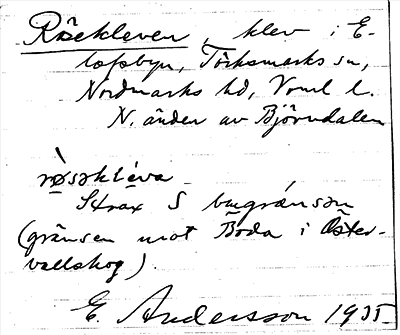 Röseklever, klev i E-
lofsbyn, Töcksmarks sn,
Nordmarks hd, Vrml l.
N. änden av Björndalen
Strax S bygränsen
(gränsen mot Boda i Öster-
vallskog).
E. Andersson 1935